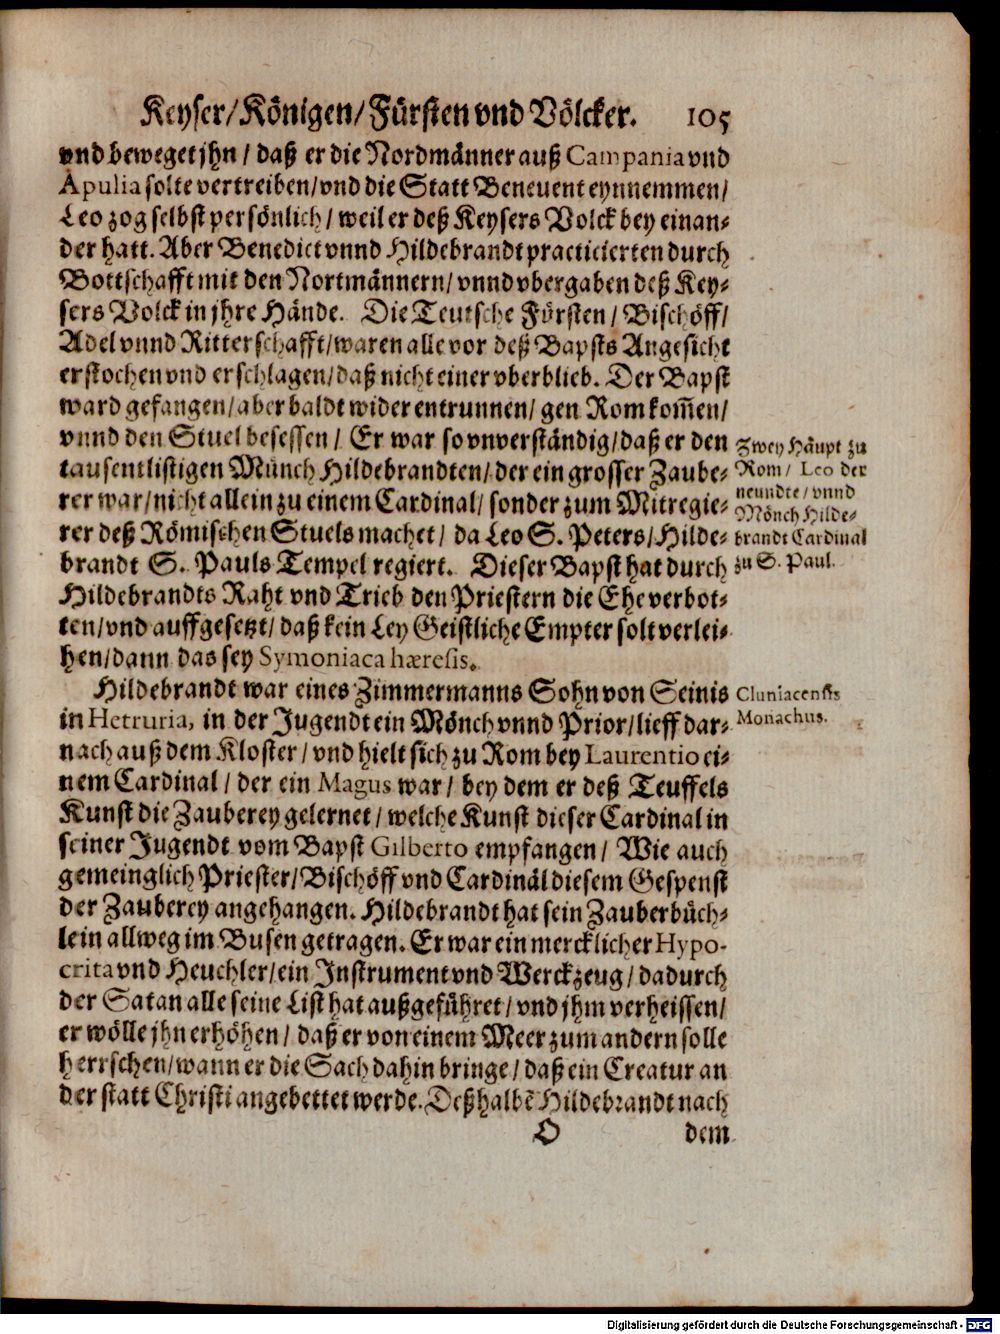 Keyser/Königen/Fürsten vnd Völcker. 105
vnd beweget jhn / daß er die Nordmänner auß Campania vnd
Apulia solte vertreiben/vnd die Statt Beneuent eynnemmen/
Leo zog selbst persönlich / weil er deß Keysers Volck bey einan-
der hatt. Aber Benedict vnnd Hildebrandt practicierten durch
Bottschafft mit den Nortmännern/ vnnd vbergaben deß Key-
sers Volck in jhre Hände. Die Teutsche Fürsten / Bischöff/
Adel vnnd Ritterschafft/waren alle vor deß Bapsts Angesicht
erstochen vnd erschlagen/daß nicht einer vberblieb. Der Bapst
ward gefangen/aber baldt wider entrunnen/ gen Rom kom̃en/
vnnd den Stuel besessen / Er war so vnverständig/daß er den
tausentlistigen Münch Hildebrandten/der ein grosser Zaube-
rer war/nicht allein zu einem Cardinal/ sonder zum Mitregie-
rer deß Römischen Stuels machet/ da Leo S. Peters/Hilde-
brandt S. Pauls Tempel regiert. Dieser Bapst hat durch
Hildebrandts Raht vnd Trieb den Priestern die Ehe verbot-
ten/vnd auffgesetzt/daß kein Ley Geistliche Empter solt verlei-
hen/dann das sey Symoniaca hæresis.
Zwey Häupt zu
Rom/ Leo der
neundte/vnnd
Mönch Hilde-
brandt Cardinal
zu S. Paul.
Hildebrandt war eines Zimmermanns Sohn von Seinis
in Hetruria, in der Jugendt ein Mönch vnnd Prior/lieff dar-
nach auß dem Kloster/vnd hielt sich zu Rom bey Laurentio ei-
nem Cardinal / der ein Magus war/ bey dem er deß Teuffels
Kunst die Zauberey gelernet/welche Kunst dieser Cardinal in
seiner Jugendt vom Bapst Gilberto empfangen/ Wie auch
gemeinglich Priester/Bischöff vnd Cardinäl diesem Gespenst
der Zauberey angehangen. Hildebrandt hat sein Zauberbüch-
lein allweg im Busen getragen. Er war ein mercklicher Hypo-
crita vnd Heuchler/ein Instrument vnd Werckzeug/dadurch
der Satan alle seine List hat außgeführet/vnd jhm verheissen/
er wölle jhn erhöhen/ daß er von einem Meer zum andern solle
herrschen/wann er die Sach dahin bringe/daß ein Creatur an
der statt Christi angebettet werde. Deßhalbẽ Hildebrandt nach
Cluniacensis
Monachus.
O dem
Digitalisierung gefördert durch die Deutsche Forschungsgemeinschaft - DFG